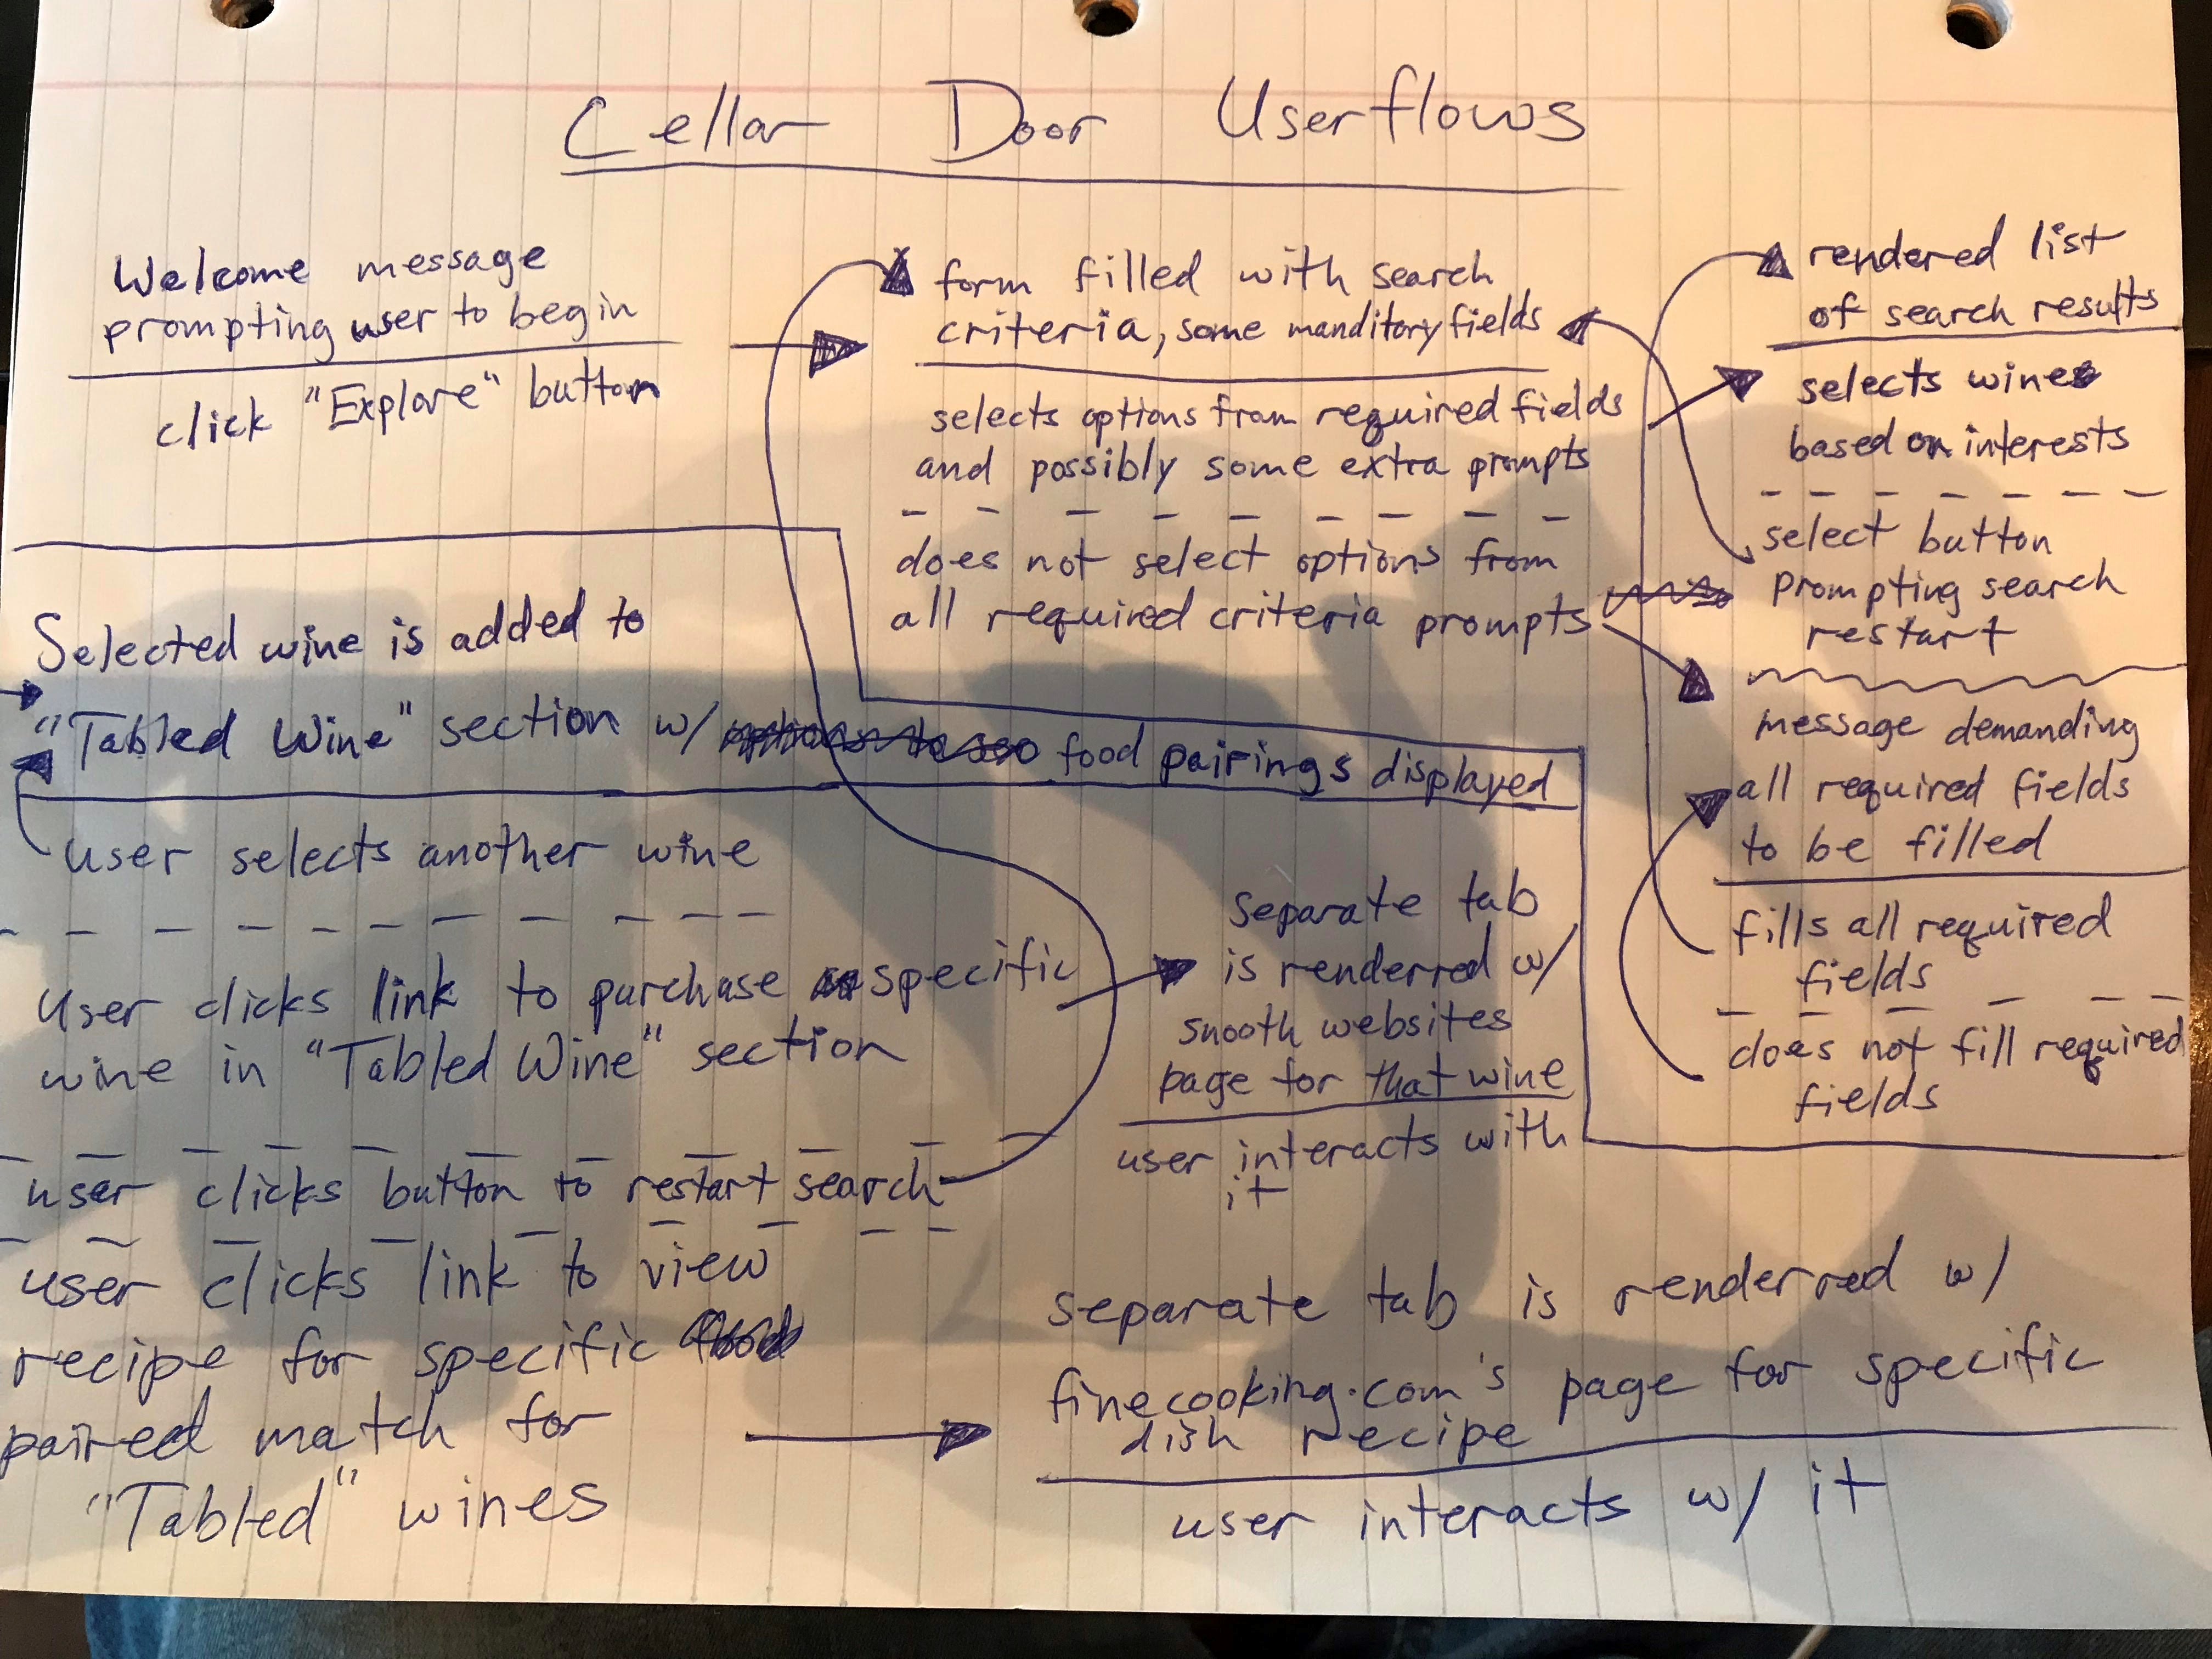 Cellar Door Userflows
Welcome message
prompting user to begin
click "Explore" button
form filled with search
criteria, some manditory fields
selects options from required fields
and possibly some extra prompts
does not select options from
all required criteria prompts
rendered list
of search results
selects wines
based on interests
select button
prompting search
restart
message demanding
all required fields
to be filled
fills all required
fields
does not fill required
fields
Selected wine is added to
"Tabled Wine" section w/ food pairings displayed
user selects another wine
User clicks link to purchase specific
wine in "Tabled Wine" section
user clicks button to restart search
user clicks link to view
recipe for specific
paired match for
"Tabled" wines
separate tab
is renderred w/
snooth websites
page for that wine
user interacts with
it
separate tab is renderred w/
finecooking.com's page for specific
dish recipe
user interacts w/ it